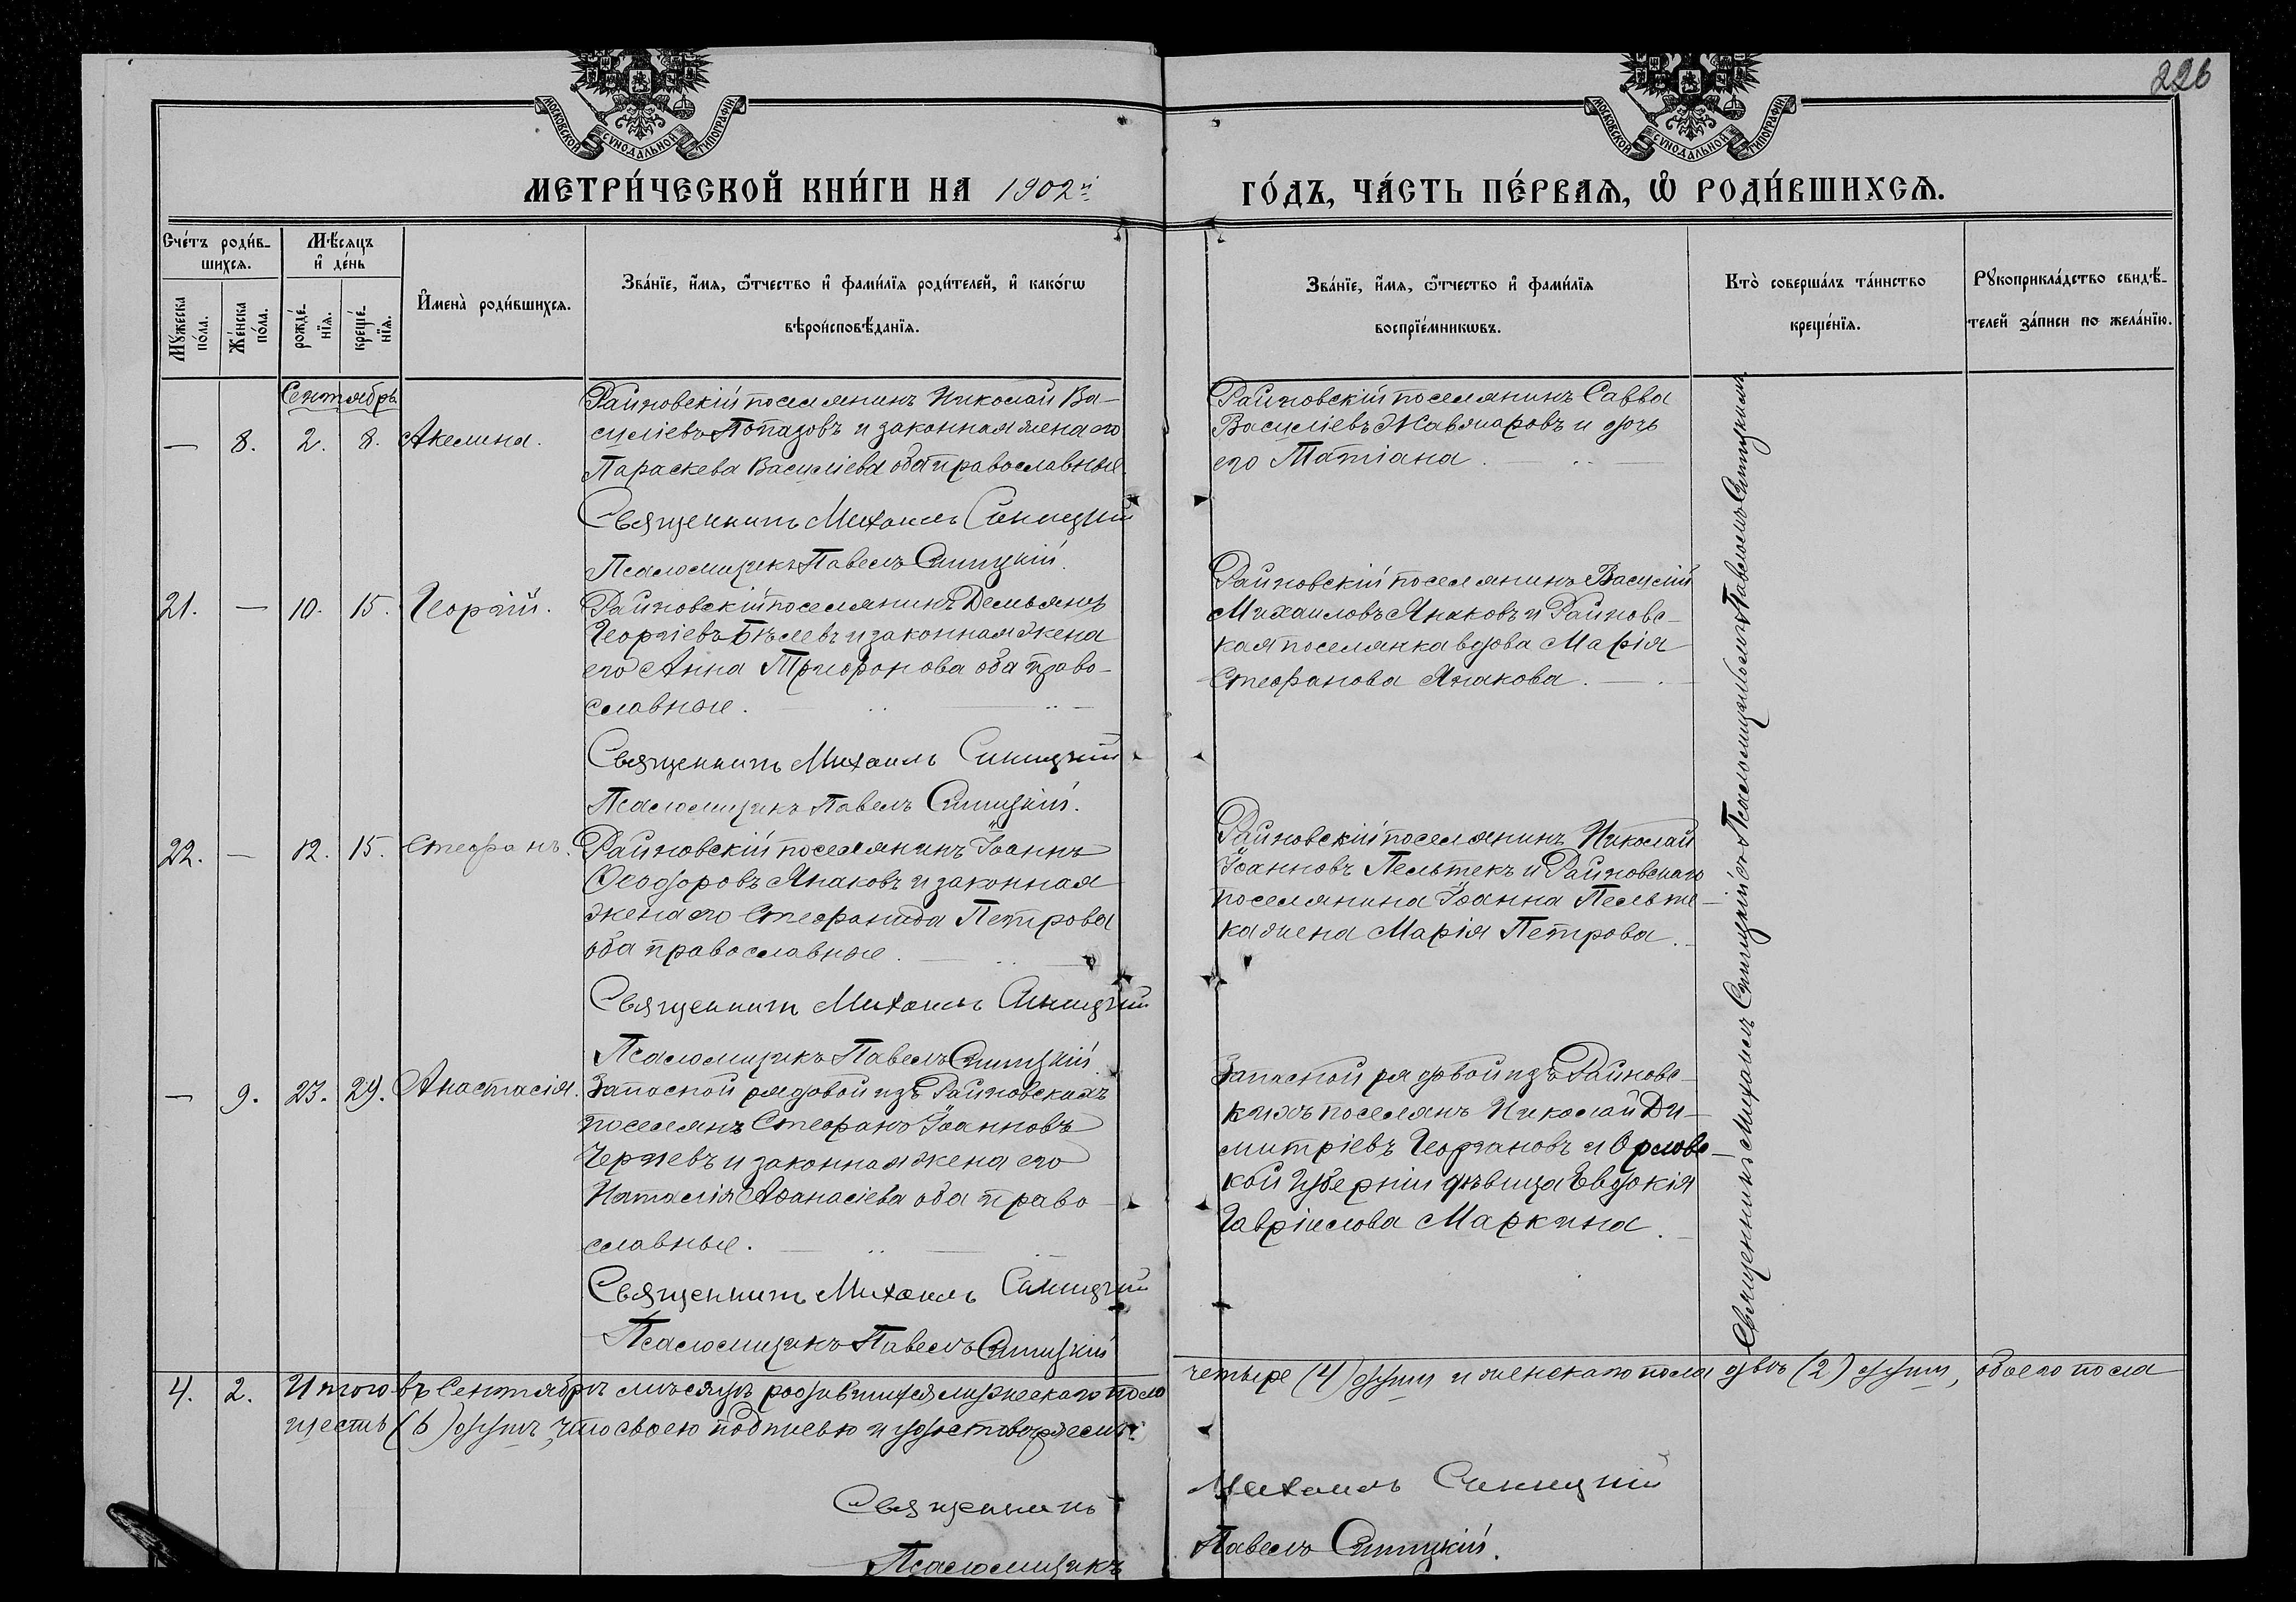 226
МОСКОВСКОЙ СУНОДАЛЬНОЙ ТИПОГРАФІИ
МОСКОВСКОЙ СУНОДАЛЬНОЙ ТИПОГРАФІИ
МЕТРИ́ЧЕСКОЙ КНИ́ГИ НА 1902й
ГО́ДЪ, ЧА́СТЬ ПЕ́РВАѦ, Ѡ҆ РОДИ́ВШИХСѦ.
Сче́тъ роди́в-
шихсѧ.
Мꙋ́жеска по́ла.
Же́нска по́ла.
Мѣ́сѧцъ
и҆ де́нь
рожде́-
нїѧ.
креще́-
нїѧ.
И҆мена̀ роди́вшихсѧ.
Зва́нїе, и҆́мѧ, ѻ҆́тчество и҆ фами́лїѧ роди́телей, и҆ како́гѡ
вѣроисповѣ́данїѧ.
Зва́нїе, и҆́мѧ, ѻ҆́тчество и҆ фами́лїѧ
воспрїе́мникѡвъ.
Кто̀ соверша́лъ та́инство
креще́нїѧ.
Рꙋкоприкла́дство свидѣ́-
телей за́писи по жела́нїю.
Сентябрь
— 8. 2. 8. Акелина.
Райновскій поселянинъ Николай Ва-
силіевъ и законная жена его
Параскева Василіева оба православные
Священникъ Михаилъ Синицкий
Псаломщикъ Павелъ Синицкій.
Райновскій поселянинъ Савва
Василіевъ и дочь
его Татіана.
21. — 10. 15. Георгій.
Райновскій поселянинъ Демьянъ
Георгіевъ и законная жена
его Анна Трифонова оба право-
славные.
Священникъ Михаилъ Синицкий
Псаломщикъ Павелъ Синицкій.
Райновскій поселянинъ Василій
Михаиловъ Янаковъ и Райновс-
кая поселянка вдова Марія
Стефанова Янакова.
22. — 12. 15. Стефанъ.
Райновскій поселянинъ Іоаннъ
Ѳеодоровъ Янаковъ и законная
жена его Стефанида Петрова
оба православные.
Священникъ Михаилъ Синицкий
Псаломщикъ Павелъ Синицкій.
Райновскій поселянинъ Николай
Іоанновъ Пельтек и Райновскаго
поселянина Іоанна Пельте-
ка жена Марія Петрова.
— 9. 23. 29. Анастасія.
Запасной рядовой изъ Райновскихъ
поселянъ Стефанъ Іоанновъ
Черневъ и законная жена его
Наталія Аѳанасіева оба право-
славные.
Священникъ Михаилъ Синицкий
Псаломщикъ Павелъ Синицкій
Запасной рядовой изъ Райновс-
кихъ поселянъ Николай Ди-
митріевъ Георгановъ и Орловс-
кой губерніи дѣвица Евдокія
Гавріилова Маркина.
Священникъ Михаилъ Синицкій съ Псаломщикомъ Павломъ Синицкимъ.
4. 2. Итого въ Сентябрѣ мѣсяцѣ родившихся мужескаго пола четыре (4) души и женскаго пола двѣ (2) души, обоего пола
шесть (6) душъ, что своею подписью и удостовѣряемъ.
Священникъ Михаилъ Синицкий
Псаломщикъ Павелъ Синицкій.